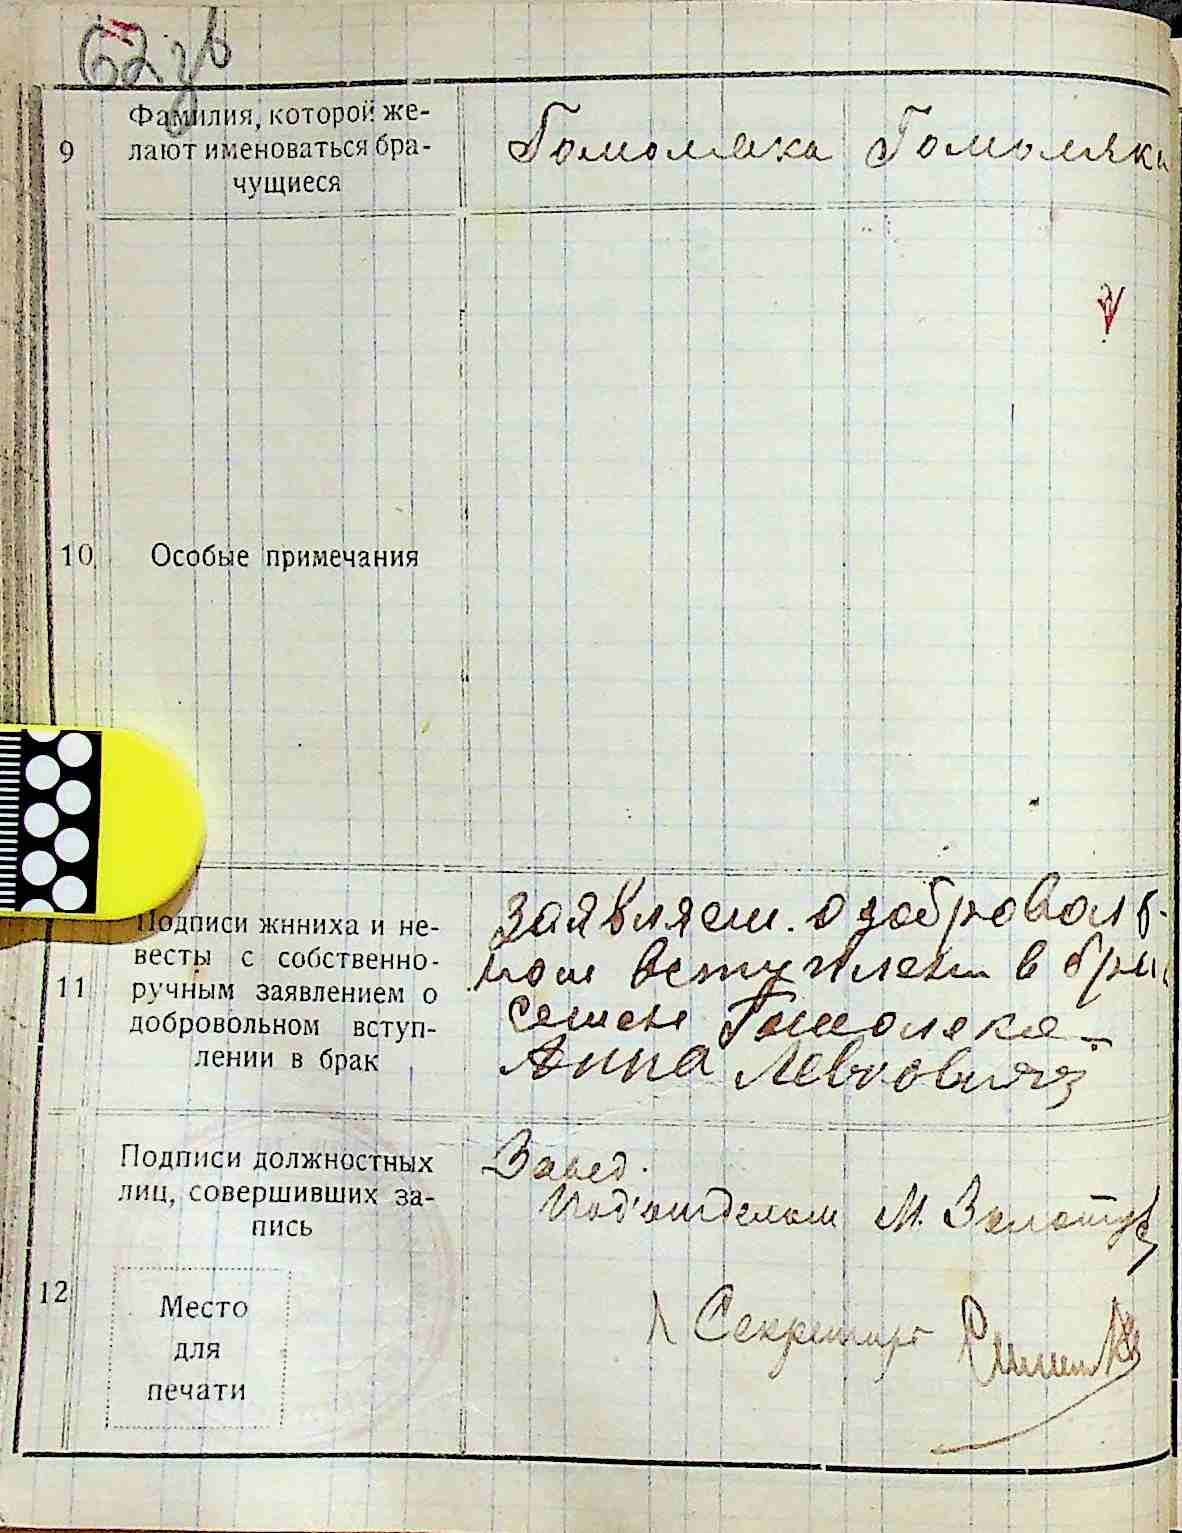 62 зв
9
Фамилия, которой же-
лают именоваться бра-
чущиеся
Гомоляка Гомоляка
10
Особые примечания
11
Подписи жнниха и не-
весты с собственно-
ручным заявлением о
добровольном вступ-
лении в брак
заявляем о добровол
ном вступлени в
семен Гомоляка
Анна
12
Подписи должностных
лиц, совершивших за-
пись
Завед.
Под'отделом М.
Секретарь
Место
для
печати